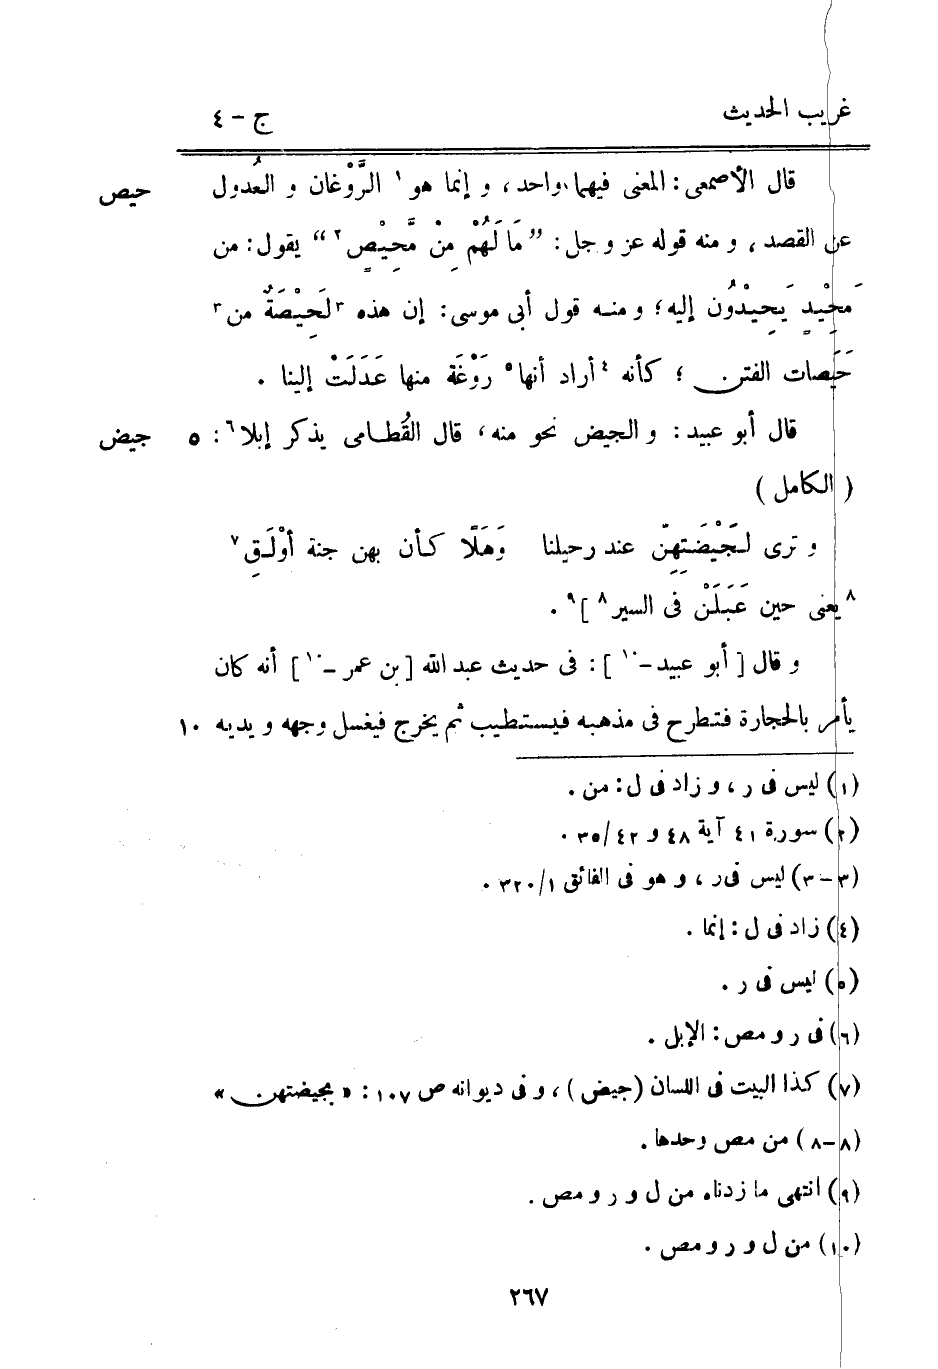 غريب الحديث ج - ٤
قال الأصمعى: المعنى فيهما واحد، و إنما هو١ الرَّوْغان و العُدول حيص
عن القصد، و منه قوله عز و جل: “مَا لَهُمْ مِنْ مَّحِيْصٍ٢” يقول: من
مَحِيْدٍ يَحِيْدُوْن إليه؛ و منه قول أبى موسى: إن هذه ٣لَحِيْصَةٌ من٣
حَيَصات الفتن؛ كأنه ٤أراد أنها٥ رَوْغَة منها عَدَلَتْ إلينا.
قال أبو عبيد: و الجيض نحو منه، قال القُطامى يذكر إبلا٦: ٥ جيض
(الكامل)
و ترى لِجَيْضَتِهِنّ عند رحيلنا وَهَلًا كأن بهن جنة أوْلَقِ٧
٨يعنى حين عَبَلَنْ فى السير٨ ]٩.
و قال [أبو عبيد-١٠]: فى حديث عبد الله [بن عمر-١٠] أنه كان
يأمر بالحجارة فتطرح فى مذهبه فيستطيب ثم يخرج فيغسل وجهه و يديه ١٠
(١) ليس فى ر، و زاد فى ل: من.
(٢) سورة ٤١ آية ٤٨ و ٤٢/٣٥.
(٣-٣) ليس فى ر، و هو فى الفائق ١/٣٢٠.
(٤) زاد فى ل: إنما.
(٥) ليس فى ر.
(٦) فى ر و مص: الإبل.
(٧) كذا البيت فى اللسان (جيض)، و فى ديوانه ص ١٠٧: «بجيضتهن»
(٨-٨) من مص وحدها.
(٩) انتهى ما زدناه من ل و ر و مص.
(١٠) من ل و ر و مص.
٢٦٧